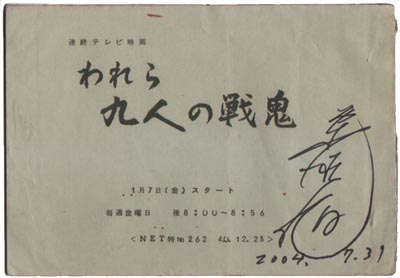 連続テレビ映画
われら
九人の戦鬼
1月7日(金)スタート
毎週金曜日 後8:00〜8:56
<NET特№262 41.12.23>
2004. 7.31